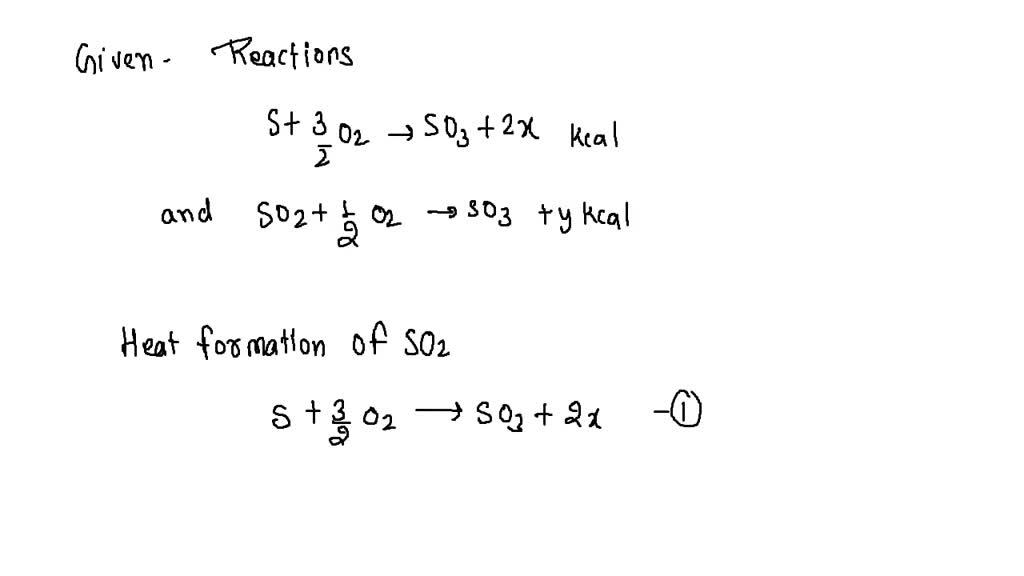 Given - Reactions
S + 3/2 O2 → SO3 + 2x kcal
and SO2 + 1/2 O2 → SO3 + y kcal
Heat formation of SO2
S + 3/2 O2 → SO3 + 2x -①